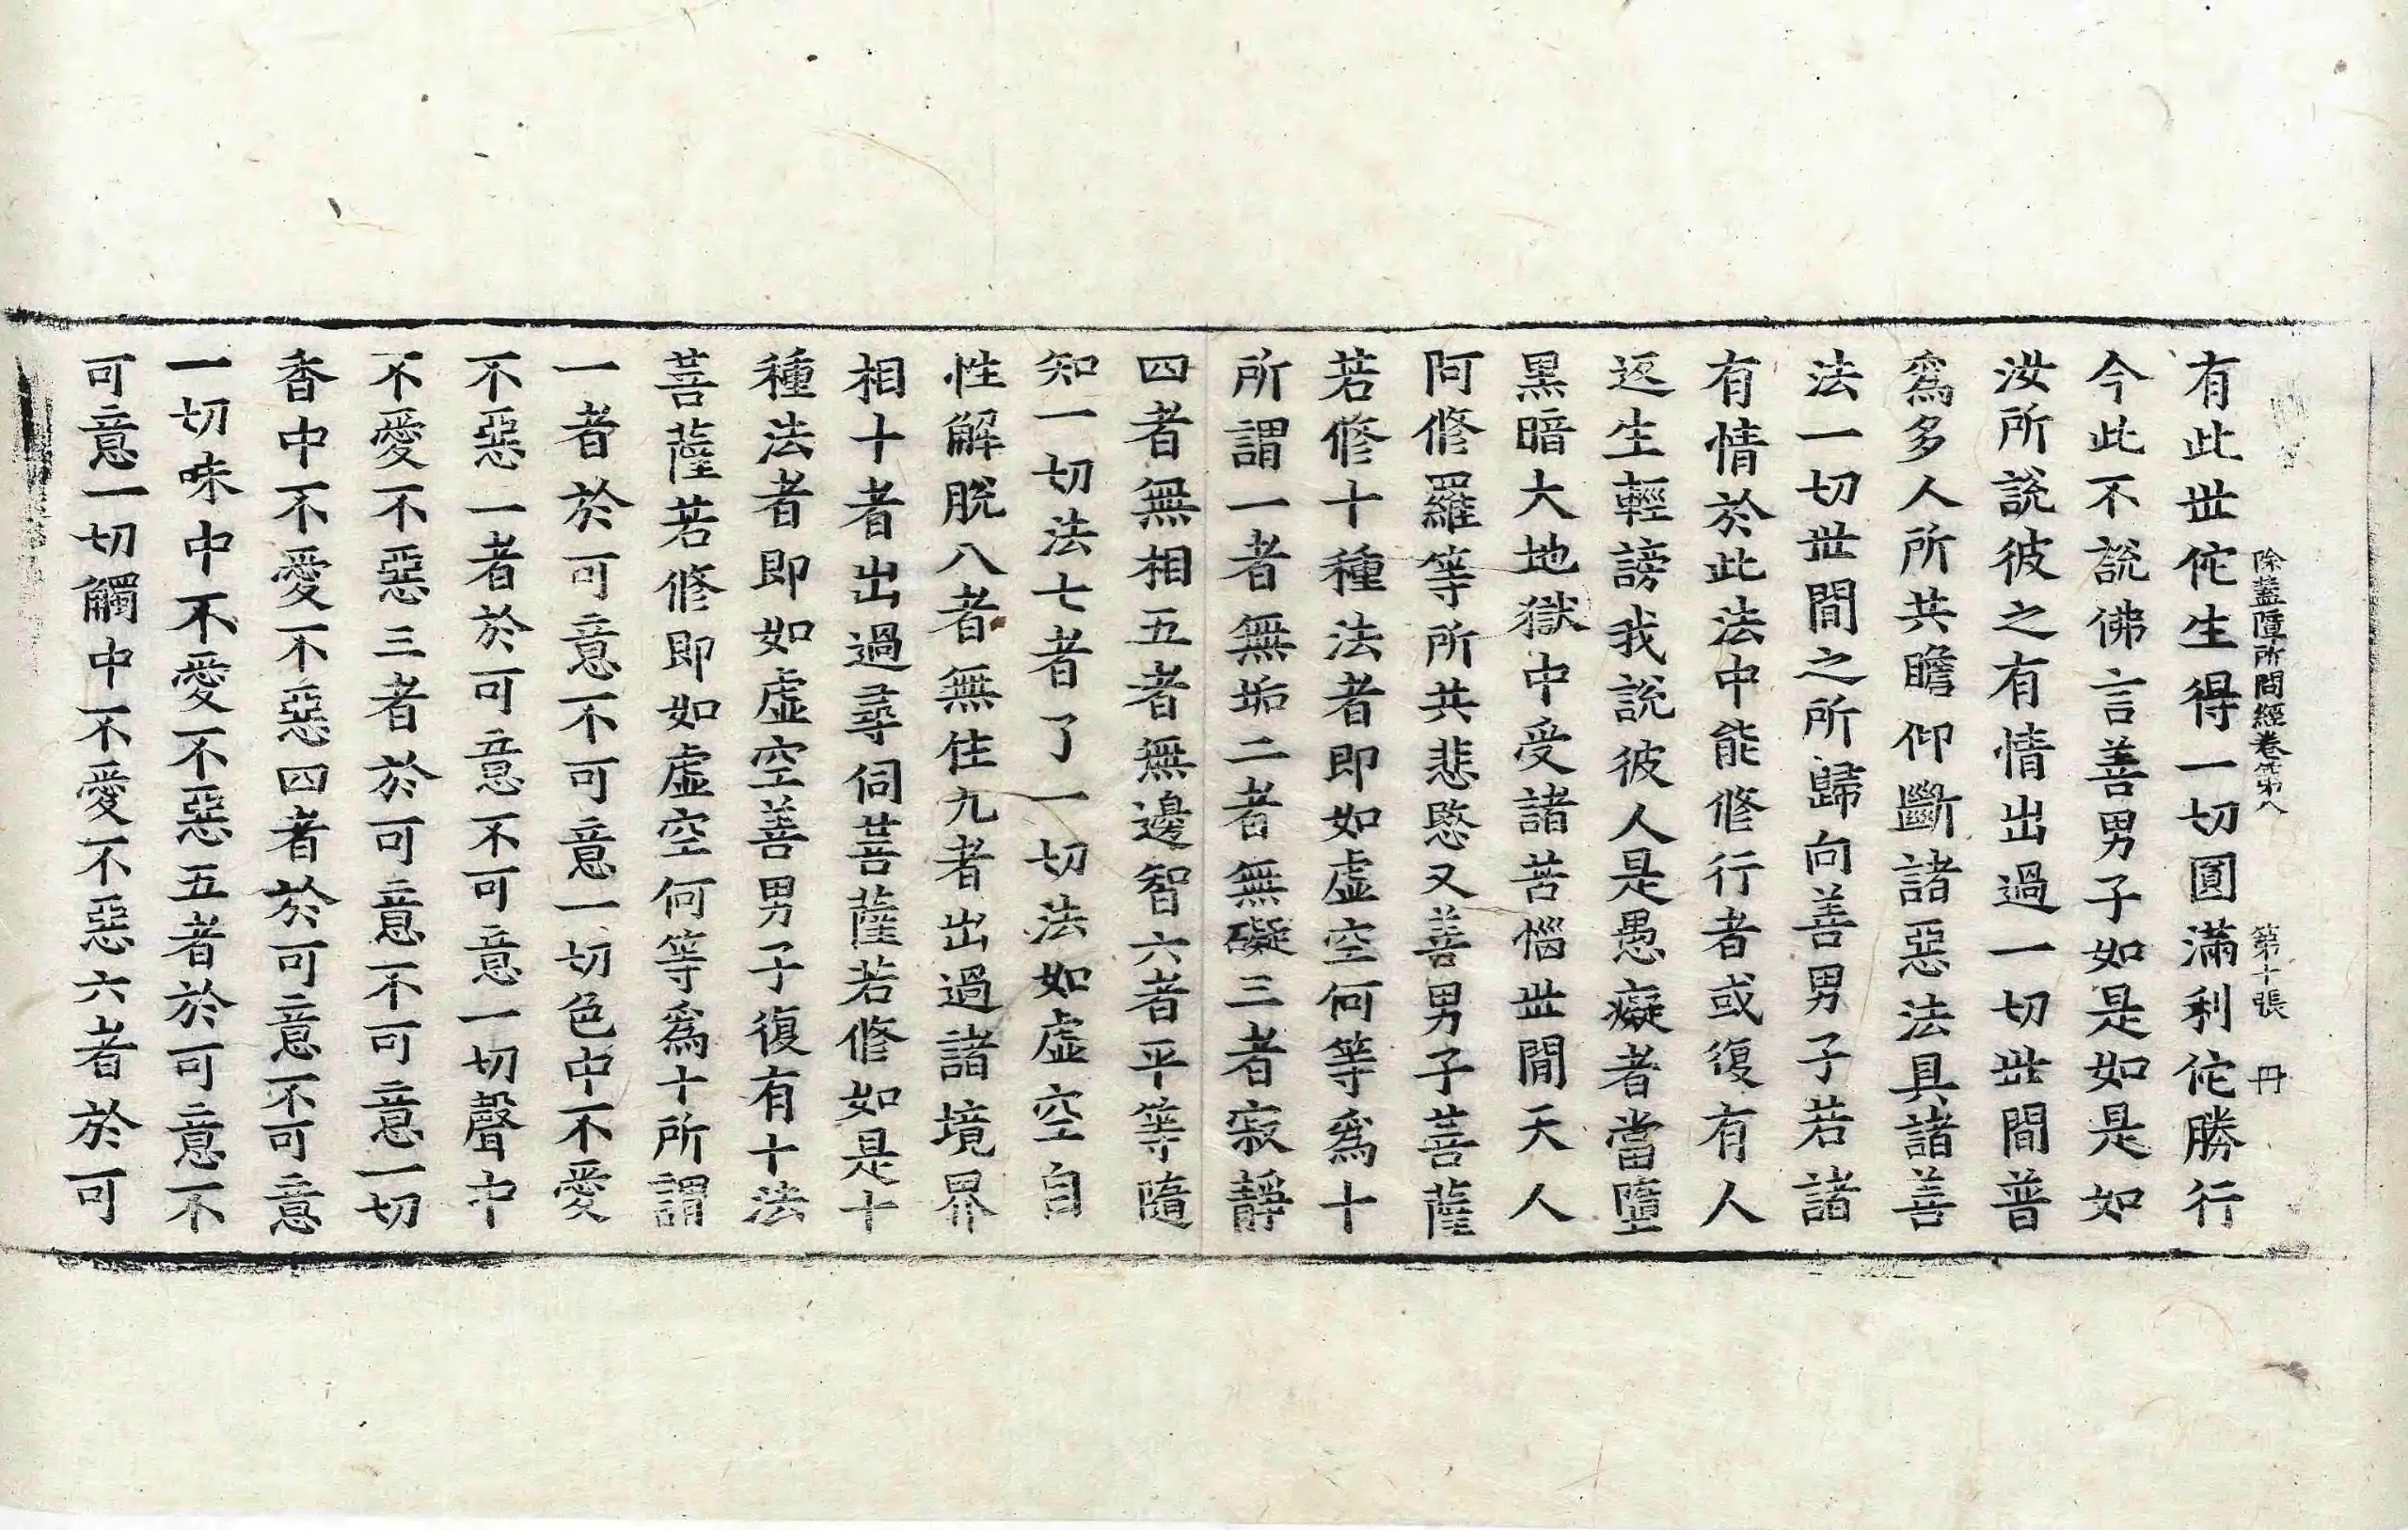 除蓋障所問經卷第八 第十張 丹
有此世佗生得一切圓滿利佗勝行
今此不說佛言善男子如是如是如
汝所說彼之有情出過一切世間普
爲多人所共瞻仰斷諸惡法具諸善
法一切世間之所歸向善男子若諸
有情於此法中能修行者或復有人
返生輕謗我說彼人是愚癡者當墮
黑暗大地獄中受諸苦惱世閒天人
阿修羅等所共悲愍又善男子菩薩
若修十種法者即如虛空何等爲十
所謂一者無垢二者無礙三者寂靜
四者無相五者無邊智六者平等隨
知一切法七者了一切法如虛空自
性解脫八者無住九者出過諸境界
相十者出過尋伺菩薩若修如是十
種法者即如虛空善男子復有十法
菩薩若修即如虛空何等爲十所謂
一者於可意不可意一切色中不愛
不惡一者於可意不可意一切聲中
不愛不惡三者於可意不可意一切
香中不愛不惡四者於可意不可意
一切味中不愛不惡五者於可意不
可意一切觸中不愛不惡六者於可